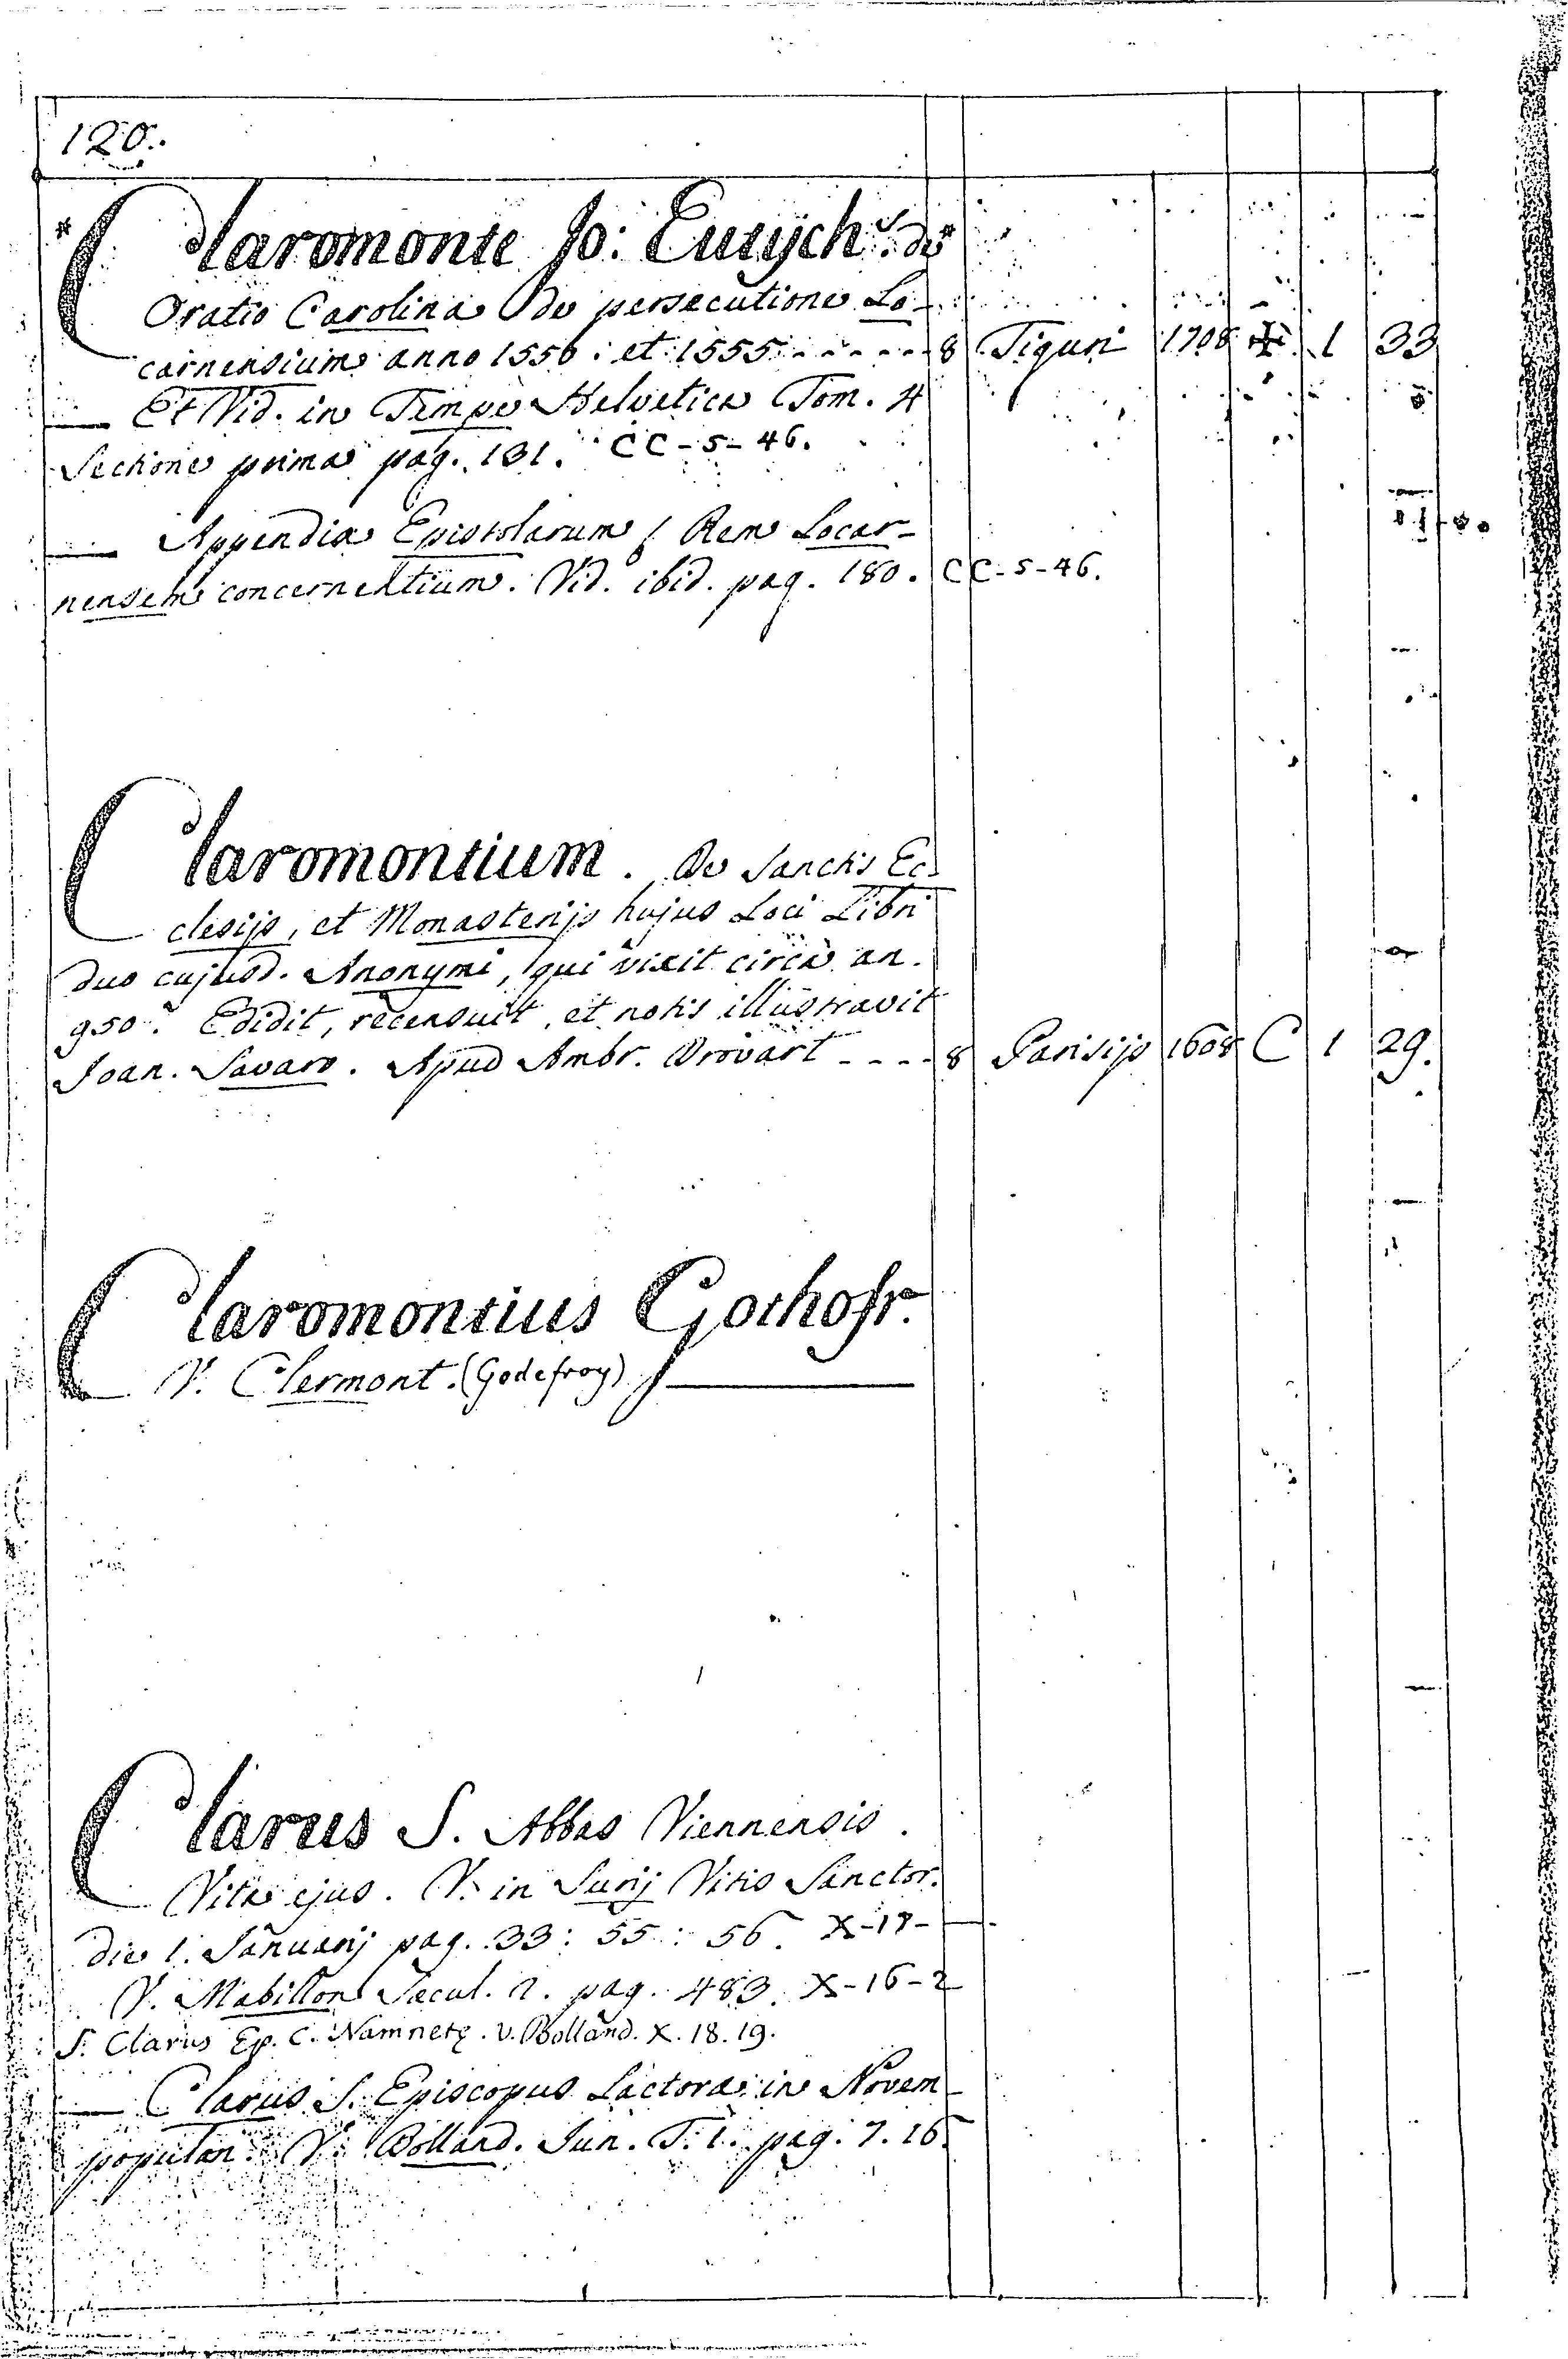 120.
* Claromonte Jo: Eutych. de
Oratio Carolina de persecutione Lo-
carnensium anno 1556. et 1555 - - - - - 8 Tiguri 1708 ✠ 1 33
— Et Vid. in Tempe Helvetica Tom. 4
Sectione prima pag. 131. CC-5-46.
— Appendix Epistolarum Rem Locar-
nensem concernentium. Vid. ibid. pag. 180. CC-5-46.
Claromontium. De Sanctis Ec-
clesijs, et Monasterijs hujus Loci Libri
duo cujusd. Anonymi, qui vixit circa an.
950. Edidit, recensuit, et notis illustravit
Joan. Savaro. Apud Ambr. Drovart - - - - 8 Parisijs 1608 C 1 29.
Claromontius Gothofr.
V. Clermont. (Godefroy)
Clarus S. Abbas Viennensis.
Vita ejus. V. in Surij Vitis Sanctor.
die 1. Januarij pag. 33: 55: 56. X-17-
V. Mabillon Saecul. 2. pag. 483. X-16-2
S. Clarus Ep. C. Namnetę. v. Bolland. X. 18. 19.
— Clarus S. Episcopus Lactorae in Novem-
populan. V. Bolland. Jun. T. 1. pag. 7. 16